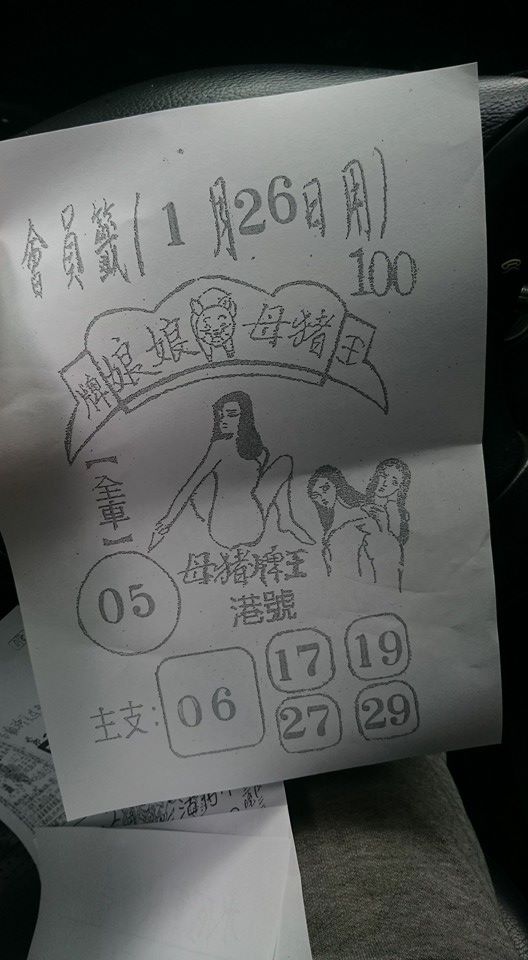 會員籤(1月26日用)
100
牌娘娘母猪王
【全車】
05
母猪牌王
港號
主支:
06
17 19
27 29